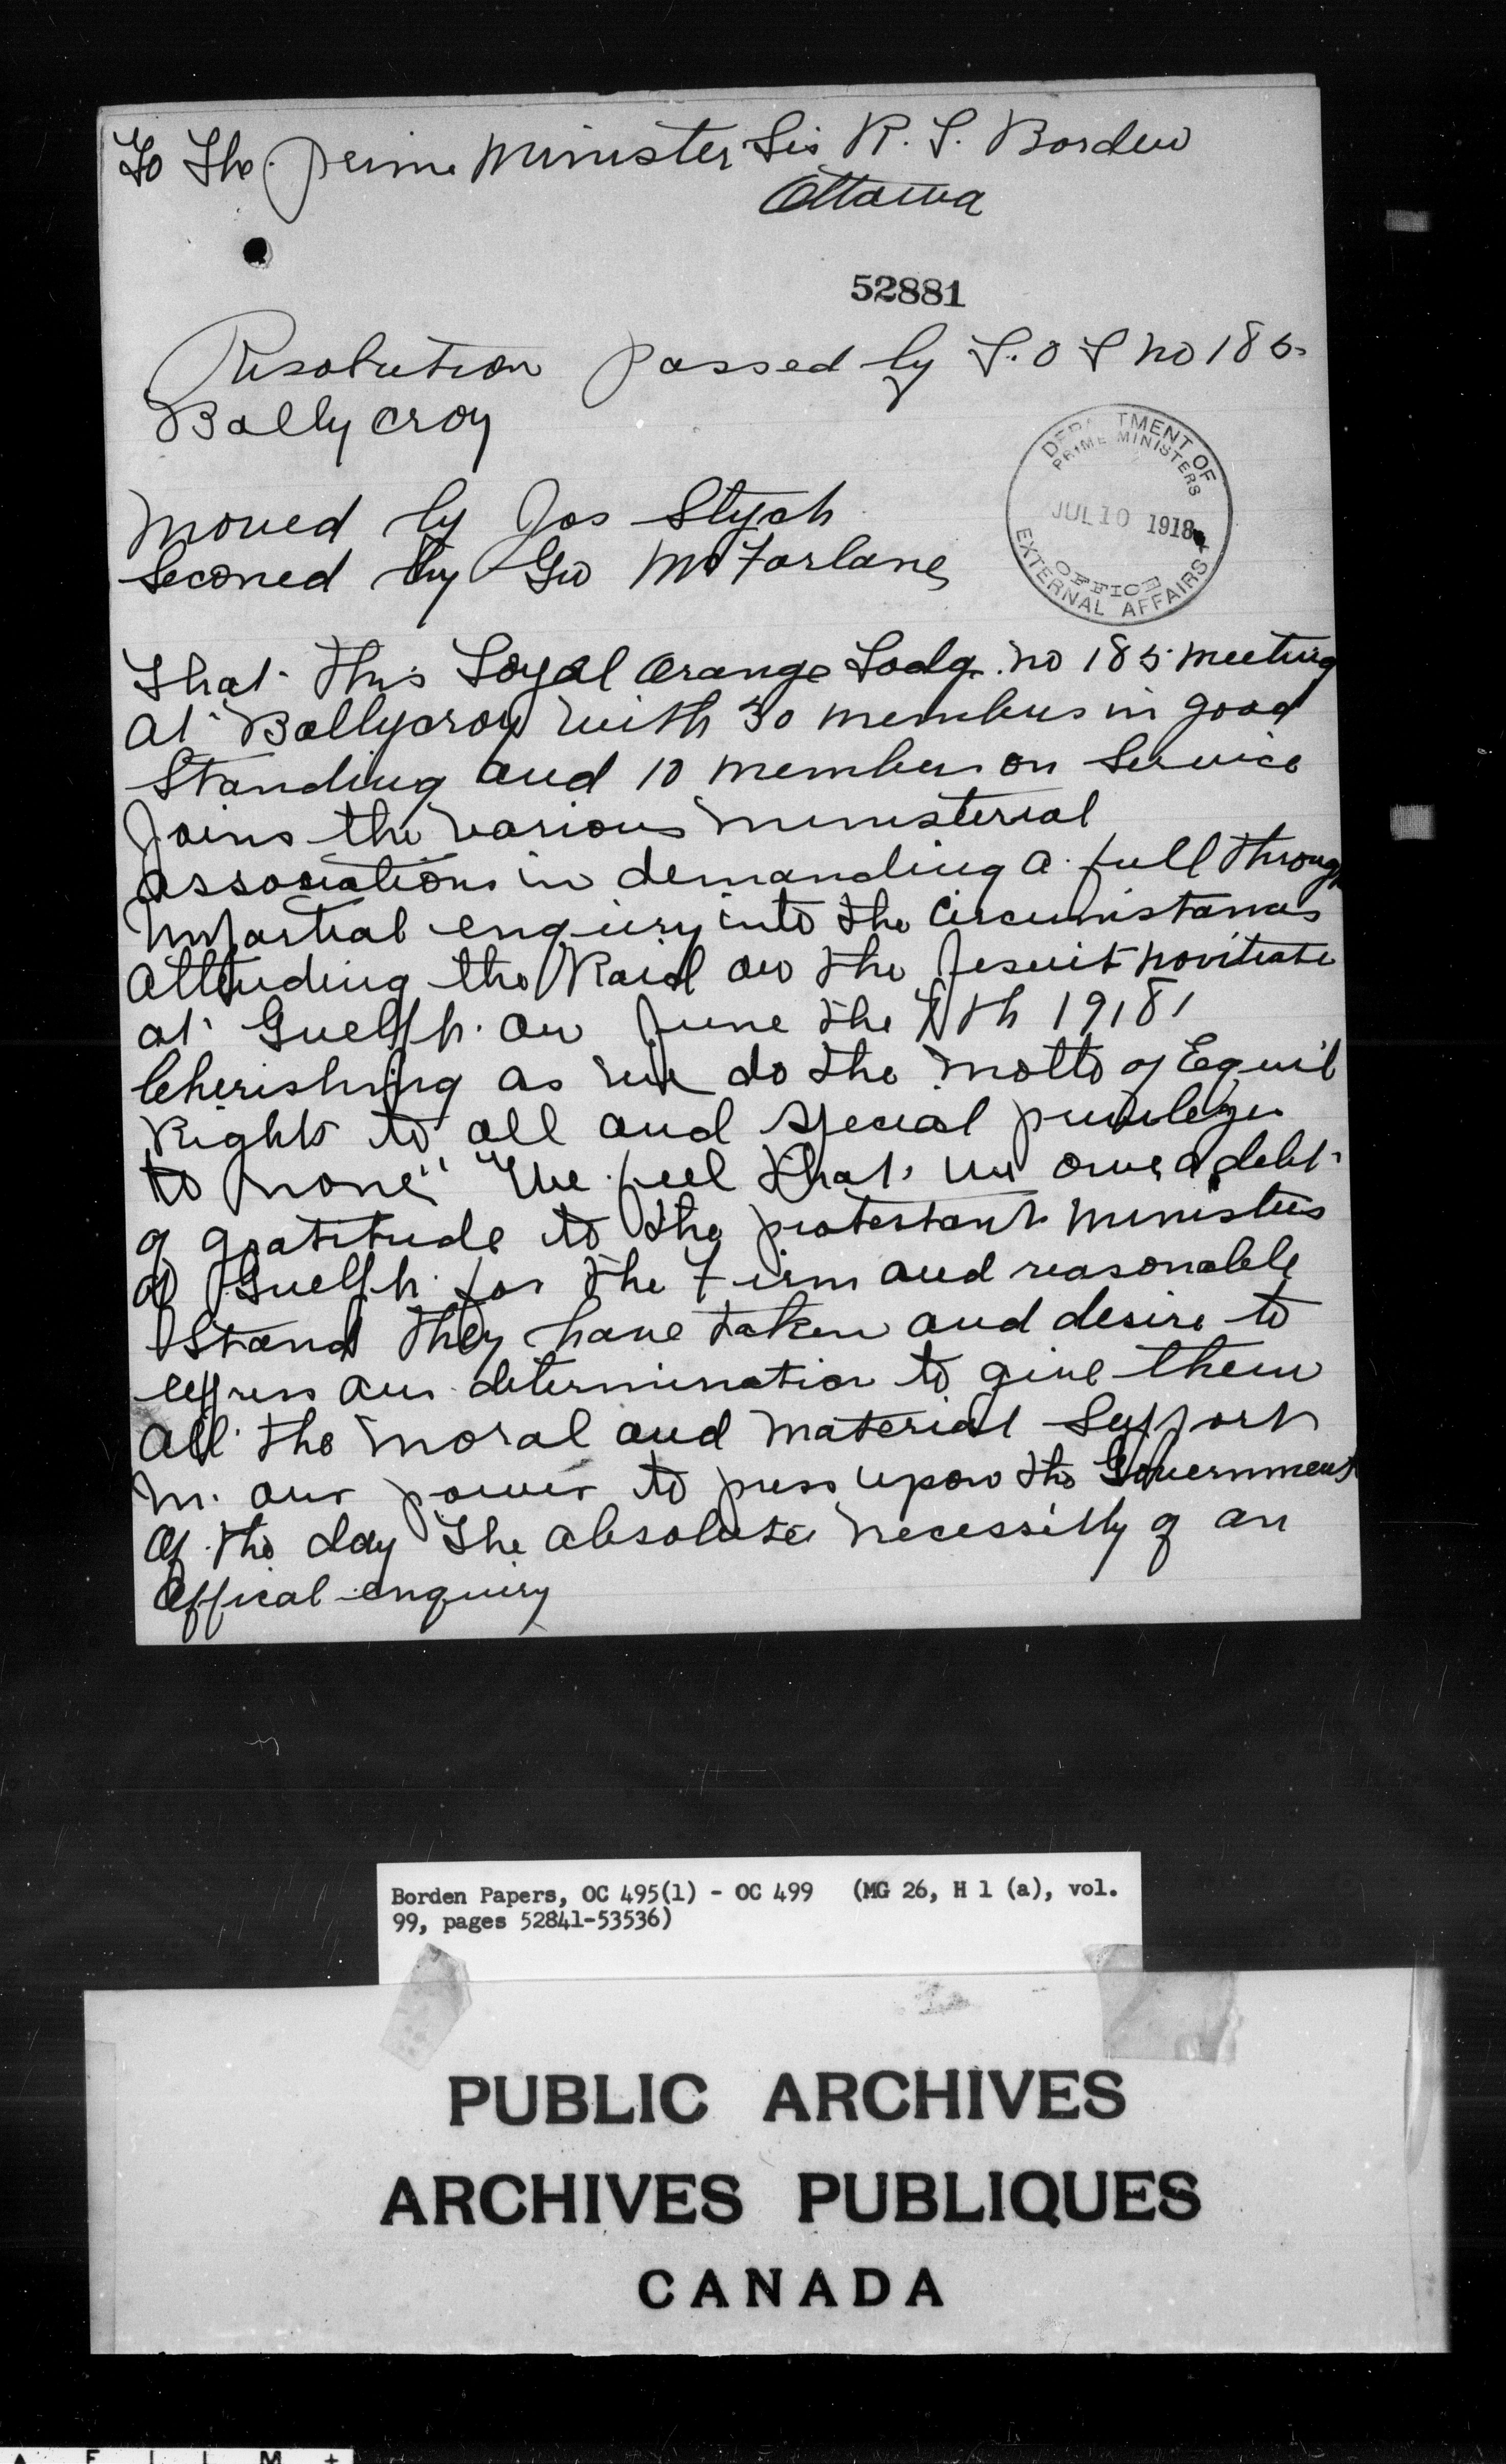 To The prime Minister Sir R. L. Borden
Ottawa
52881
Resolution passed by L.O L no 185
Ballycroy
DEPARTMENT OF
PRIME MINISTERS
JUL 10 1918
OFFICE
EXTERNAL AFFAIRS
Moved by Jas Stych
Seconed by Geo McFarlane
That this Loyal Orange Lodg. no 185 meeting
at Ballycroy with 30 members in good
Standing and 10 members on Service
Joins the various ministerial
associations in demanding a full through
Impartial enquiry into the Circumstances
attending the Raid on the Jesuit novitiate
at Guelph. on June the 7th 1918
Cherishing as we do the motto of Equil
Rights to all and special privileges
to none" We feel that we owe a debt
of gratitude to the protestant ministers
of Guelph for the Firm and reasonable
Stand they have taken and desire to
express our determination to give them
all the moral and material Support
In our power to press upon the Government
of the day The absolute necessity of an
offical enquiry
Borden Papers, OC 495(1) - OC 499 (MG 26, H 1 (a), vol.
99, pages 52841-53536)
PUBLIC ARCHIVES
ARCHIVES PUBLIQUES
CANADA